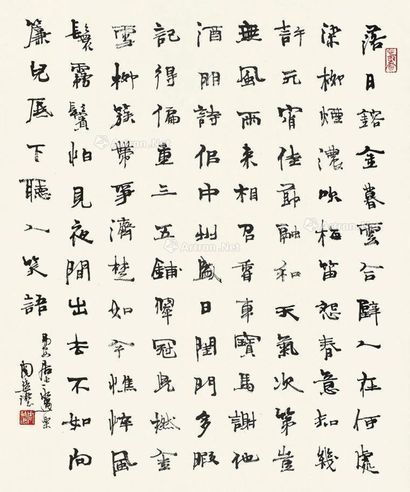 落日鎔金暮雲合璧人在何處
染柳煙濃吹梅笛怨春意知幾
許元宵佳節融和天氣次第豈
無風雨來相召香車寶馬謝他
酒朋詩侶中州盛日閨門多暇
記得偏重三五鋪翠冠兒撚金
雪柳簇帶爭濟楚如今憔悴風
鬟霧鬢怕見夜間出去不如向
簾兒底下聽人笑語
易安居士永遇樂
周慧珺
Artron.Net